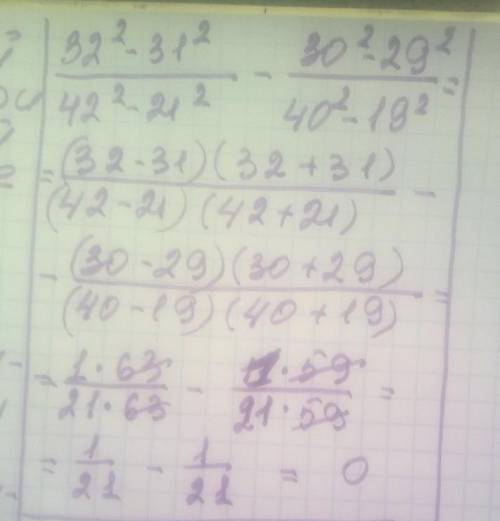 (32² - 31²)/(42² - 21²) - (30² - 29²)/(40² - 19²) =
= (32 - 31)(32 + 31)/(42 - 21)(42 + 21) -
- (30 - 29)(30 + 29)/(40 - 19)(40 + 19) =
= 1 · 63/21 · 63 - 1 · 59/21 · 59 =
= 1/21 - 1/21 = 0